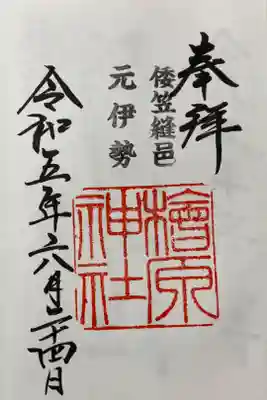 奉拝
倭笠縫邑
元伊勢
檜原
神社
令和五年六月二十四日